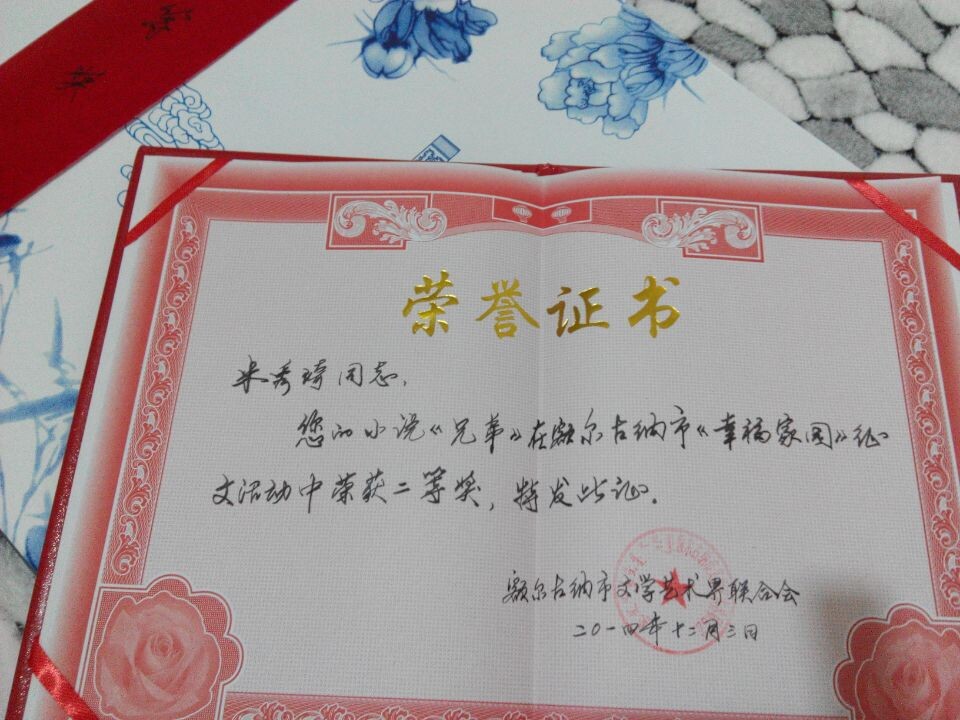 荣誉证书
米秀琦同志,
您的小说《兄弟》在额尔古纳市《幸福家园》征
文活动中荣获二等奖,特发此证.
额尔古纳市文学艺术界联合会
二〇一四年十二月三日